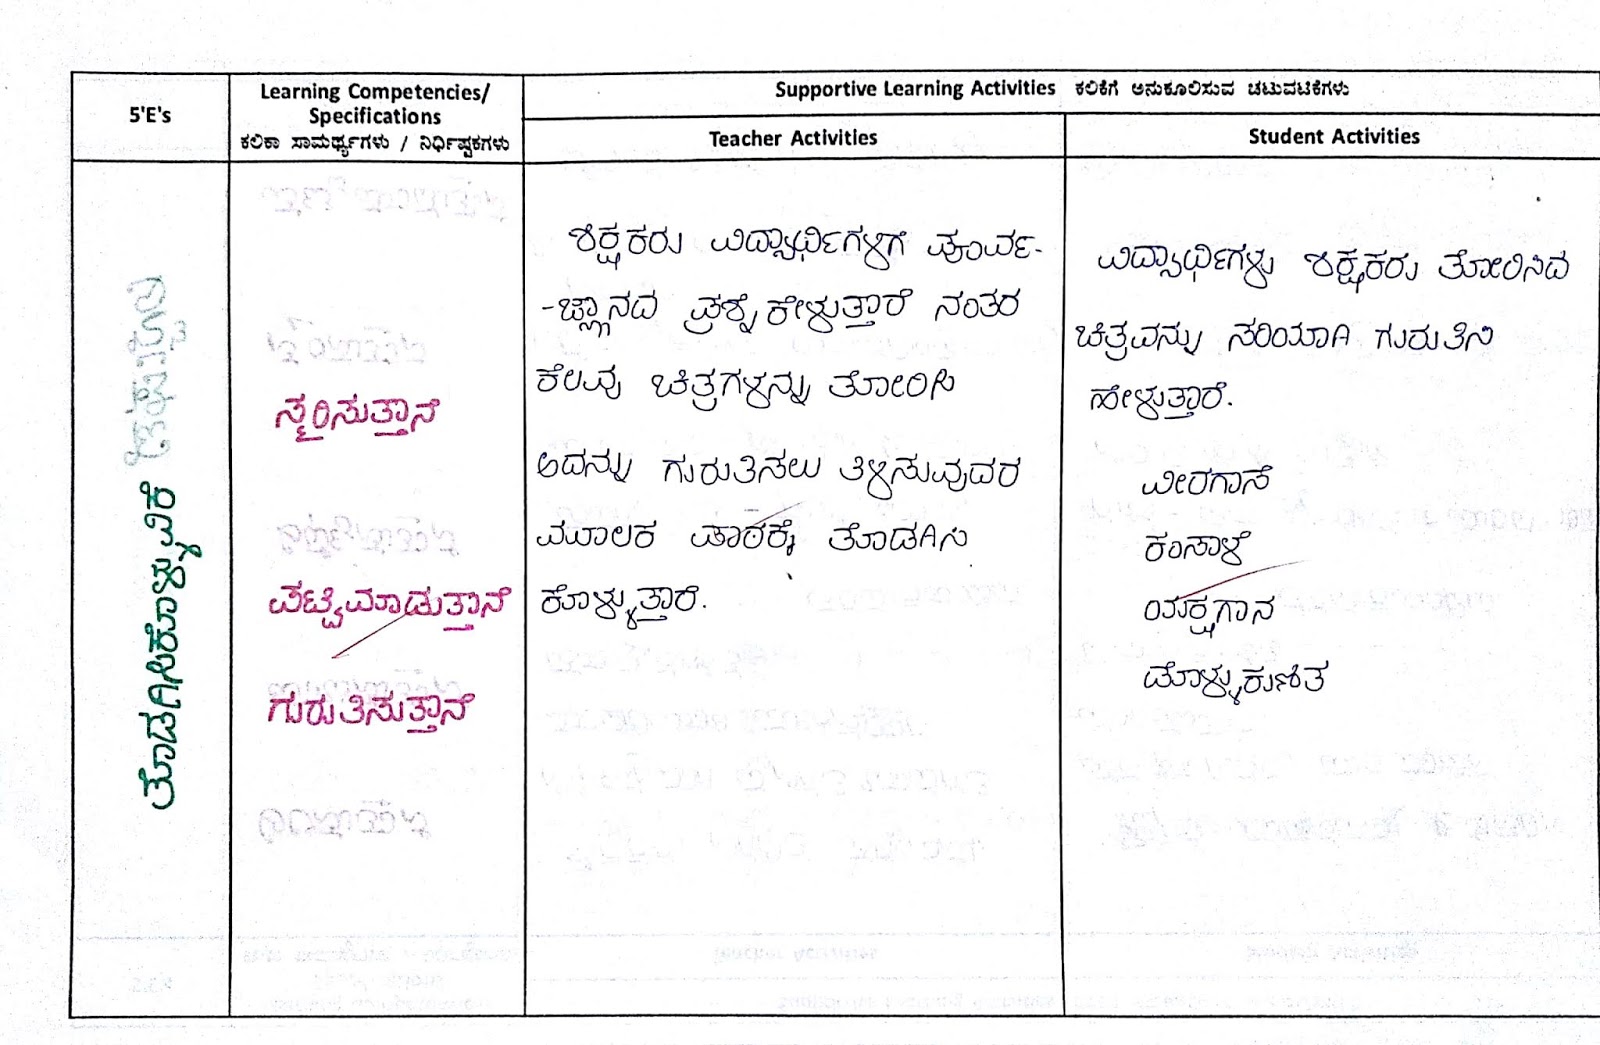 5'E's
Learning Competencies/
Specifications
ಕಲಿಕಾ ಸಾಮರ್ಥ್ಯಗಳು / ನಿರ್ಧಿಷ್ಟಕಗಳು
Supportive Learning Activities ಕಲಿಕೆಗೆ ಅನುಕೂಲಿಸುವ ಚಟುವಟಿಕೆಗಳು
Teacher Activities
Student Activities
ತೊಡಗಿಸಿಕೊಳ್ಳುವಿಕೆ
ಸ್ಮರಿಸುತ್ತಾನೆ
ಪಟ್ಟಿಮಾಡುತ್ತಾನೆ
ಗುರುತಿಸುತ್ತಾನೆ
ಶಿಕ್ಷಕರು ವಿದ್ಯಾರ್ಥಿಗಳಿಗೆ ಪೂರ್ವ-
-ಜ್ಞಾನದ ಪ್ರಶ್ನೆ ಕೇಳುತ್ತಾರೆ ನಂತರ
ಕೆಲವು ಚಿತ್ರಗಳನ್ನು ತೋರಿಸಿ
ಅದನ್ನು ಗುರುತಿಸಲು ತಿಳಿಸುವುದರ
ಮೂಲಕ ಪಾಠಕ್ಕೆ ತೊಡಗಿಸಿ
ಕೊಳ್ಳುತ್ತಾರೆ.
ವಿದ್ಯಾರ್ಥಿಗಳು ಶಿಕ್ಷಕರು ತೋರಿಸಿದ
ಚಿತ್ರವನ್ನು ಸರಿಯಾಗಿ ಗುರುತಿಸಿ
ಹೇಳುತ್ತಾರೆ.
ವೀರಗಾಸೆ
ಕಂಸಾಳೆ
ಯಕ್ಷಗಾನ
ಡೊಳ್ಳುಕುಣಿತ